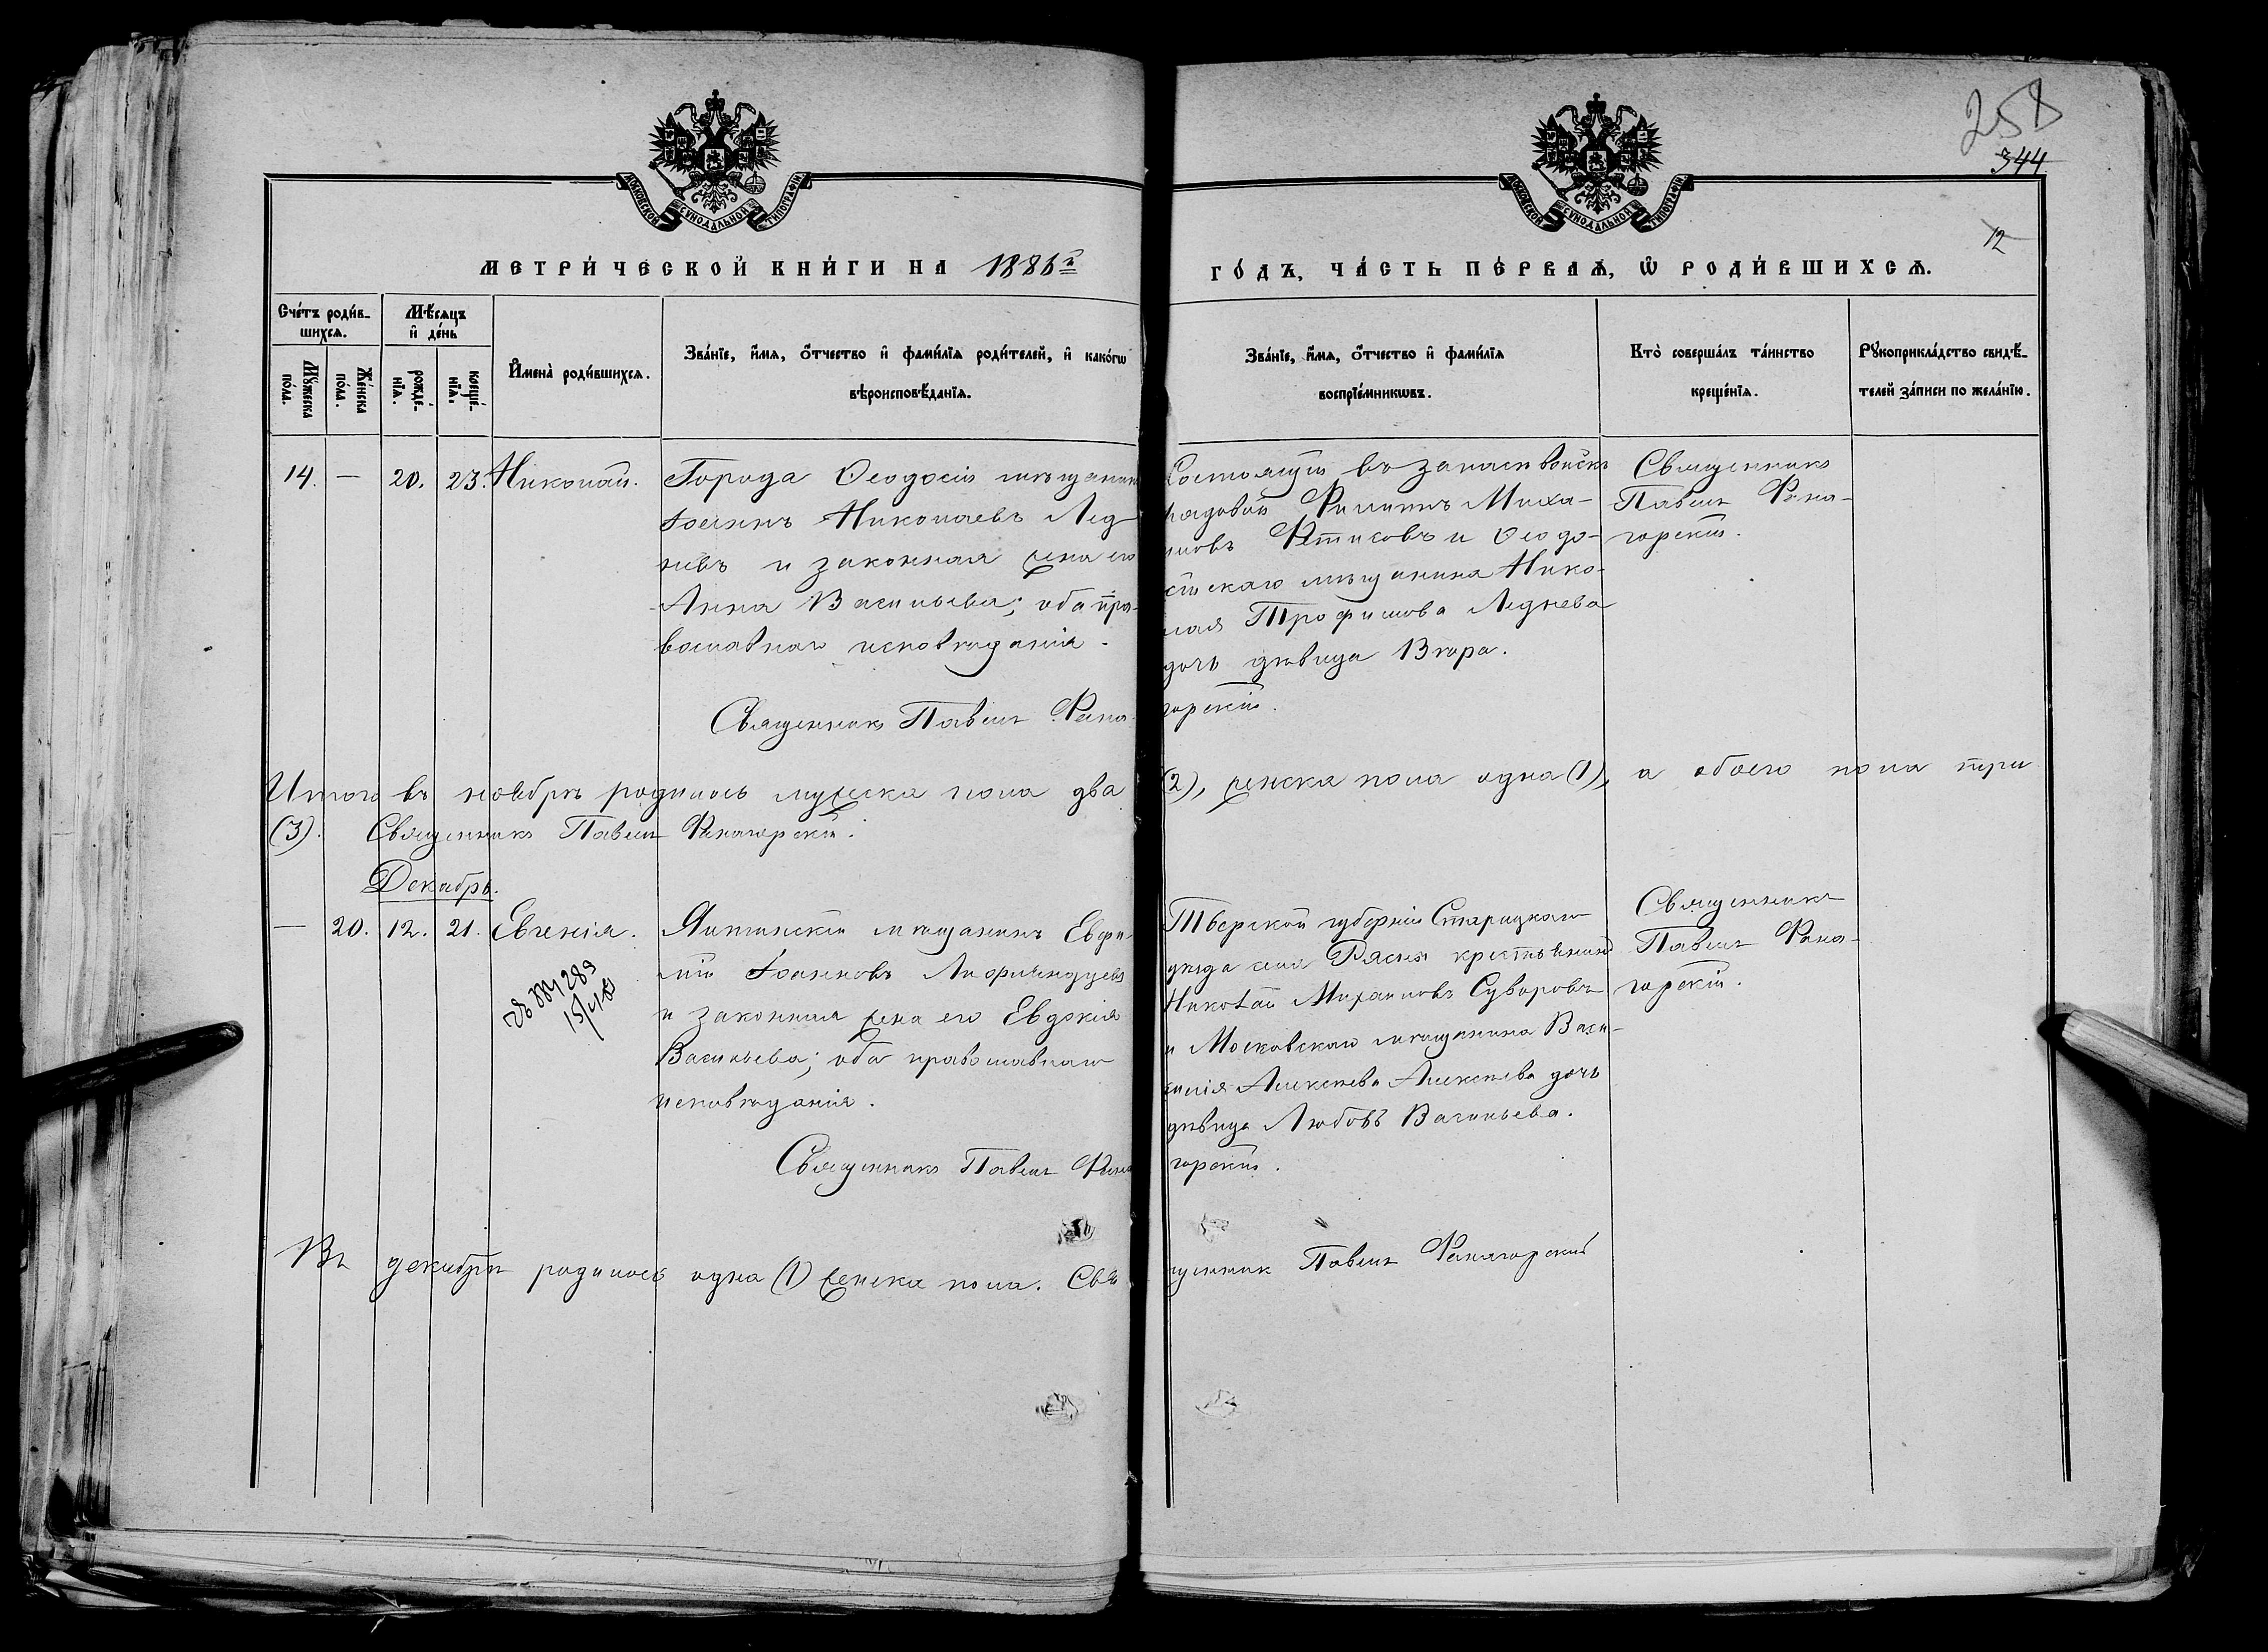 258
344
12
МОСКОВСКОЙ СѴНОДАЛЬНОЙ ТИПОГРАФІИ
МОСКОВСКОЙ СѴНОДАЛЬНОЙ ТИПОГРАФІИ
МЕТРИ́ЧЕСКОЙ КНИ́ГИ НА 1886й
ГО́ДЪ, ЧА́СТЬ ПЕ́РВАѦ, Ѡ РОДИ́ВШИХСѦ.
Сче́тъ роди́в-
шихсѧ.
Мꙋ́жеска
по́ла.
Же́нска
по́ла.
Мѣ́сѧцъ
и҆ де́нь
рожде́-
нїѧ.
креще́-
нїѧ.
И҆мена̀ роди́вшихсѧ.
Зва́нїе, и҆́мѧ, ѻ҆́тчество и҆ фами́лїѧ роди́телей, и҆ како́гѡ
вѣроисповѣ́данїѧ.
Зва́нїе, и҆́мѧ, ѻ҆́тчество и҆ фами́лїѧ
воспрїе́мникѡвъ.
Кто̀ соверша́лъ та́инство
креще́нїѧ.
Рꙋкоприкла́дство свидѣ́-
телей за́писи по жела́нїю.
14. — 20. 23. Николай.
Города Ѳеодосіи мѣщанинъ
Іоаннъ Николаевъ Лед-
невъ и законная жена его
Анна Васильева; оба пра-
вославнаго исповѣданія.
Священникъ Павелъ Фана-
Состоящій въ запасѣ войскъ
рядовой Филиппъ Миха-
иловъ Фетисовъ и Ѳеодо-
сійскаго мѣщанина Нико-
лая Трофимова Леднева
дочь дѣвица Вѣра.
горскій.
Священникъ
Павелъ Фана-
горскій.
Итого въ ноябрѣ родилось мужеска пола два (2), женска пола одна (1), а обоего пола три
(3). Священникъ Павелъ Фанагорскій.
Декабрь.
— 20. 12. 21. Евгенія.
Ялтинскій мѣщанинъ Евфи-
мій Іоанновъ
и законная жена его Евдокія
Васильева; оба православнаго
исповѣданія.
Священникъ Павелъ Фана-
Тверской губерніи Старицкаго
уѣзда села Рясни крестьянинъ
Николай Михаиловъ Суворовъ
и Московскаго мѣщанина Васи-
лія Алексѣева Алексѣева дочь
дѣвица Любовь Васильева.
горскій.
Священникъ
Павелъ Фана-
горскій.
Въ декабрѣ родилось одна (1) женска пола. Свя-
щенник Павелъ Фанагорскій